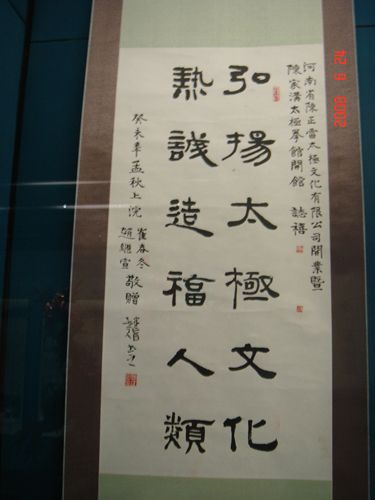 河南省陳正雷太極文化有限公司開業暨
陳家溝太極拳館開館 誌禧
弘揚太極文化
熱誠造福人類
癸未年孟秋上浣
崔春冬
趙繼宣 敬贈
2008 6 24